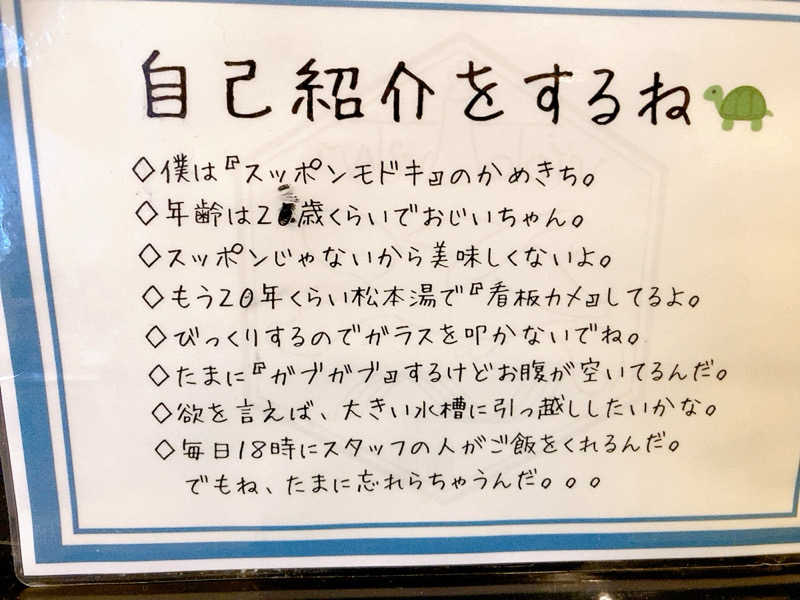 自己紹介をするね
◇僕は『スッポンモドキ』のかめきち。
◇年齢は2 歳くらいでおじいちゃん。
◇スッポンじゃないから美味しくないよ。
◇もう20年くらい松本湯で『看板カメ』してるよ。
◇びっくりするのでガラスを叩かないでね。
◇たまに『ガブガブ』するけどお腹が空いてるんだ。
◇欲を言えば、大きい水槽に引っ越ししたいかな。
◇毎日18時にスタッフの人がご飯をくれるんだ。
でもね、たまに忘れらちゃうんだ。。。